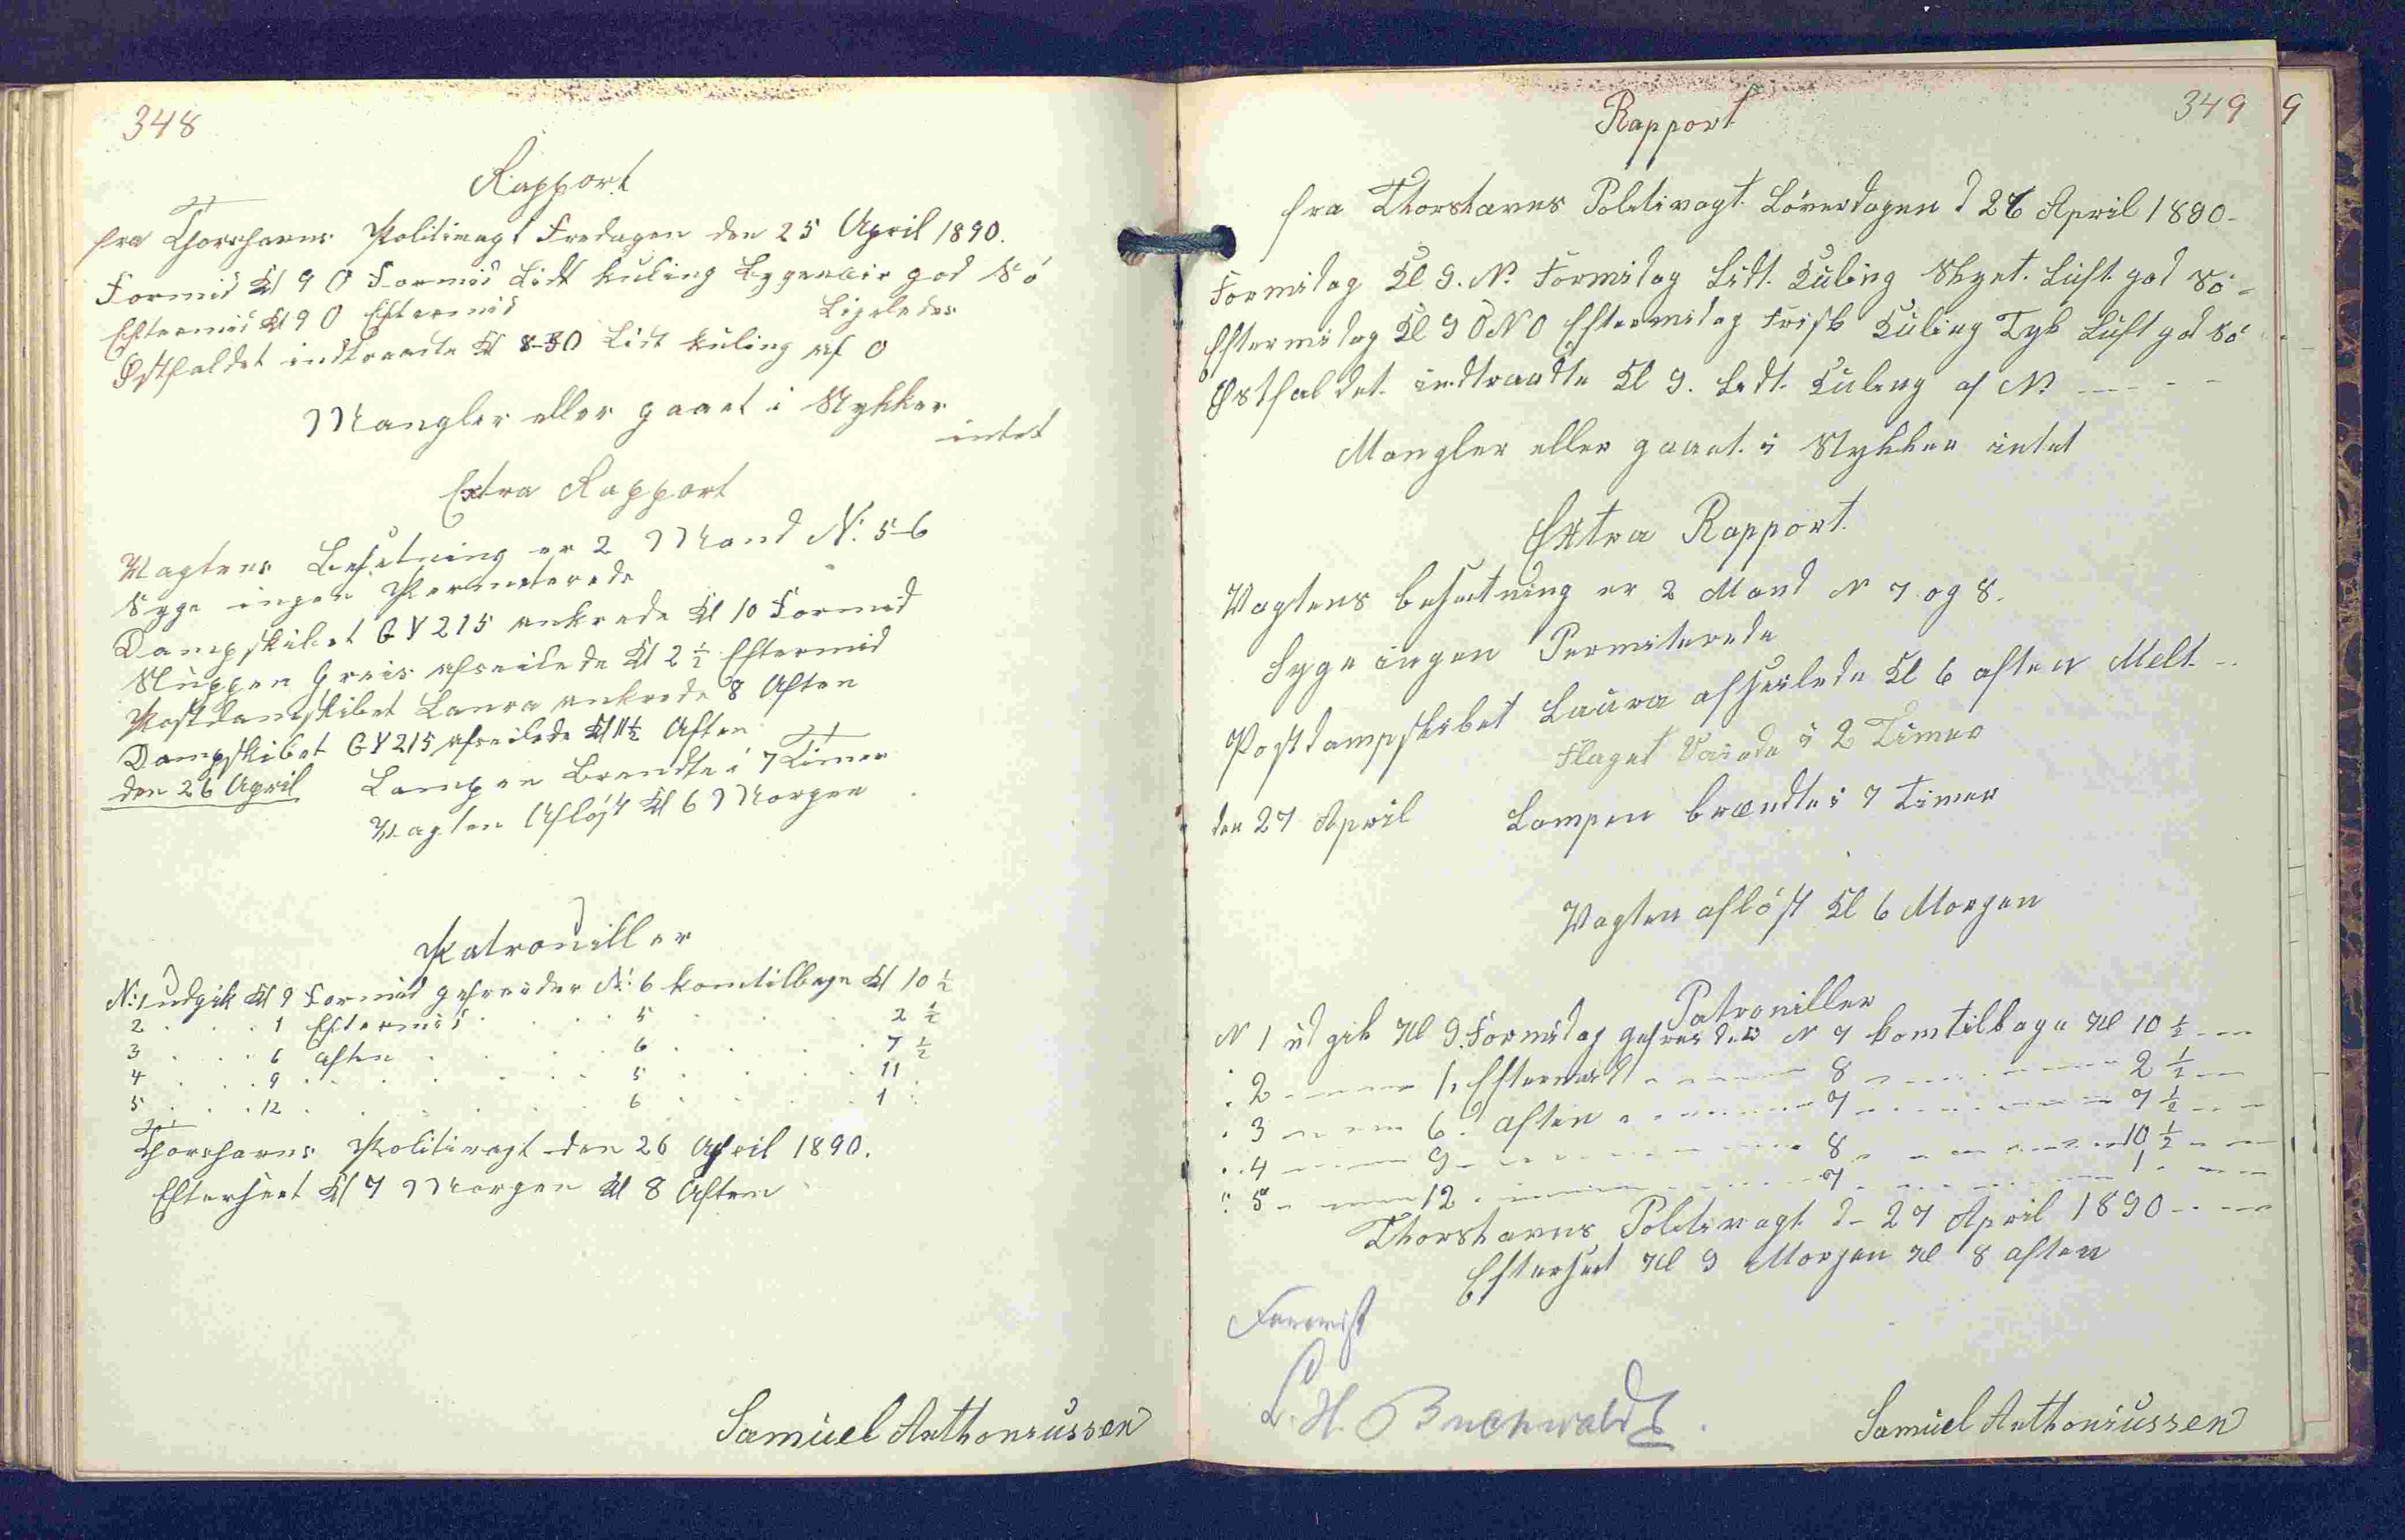 348
Rapport
fra Thorshavns Politivagt Fredagen den 25 April 1890.
Formid Kl 9 O Formid Lidt kuling Bygeveir god Sö
Eftermid Kl 9 O Eftermid Ligeledes
Østfaldet indtraadte Kl 8-30 Lidt kuling af O
Mangler eller gaaet i Stykker
intet
Extra Rapport
Vagtens Besetning er 2 Mand N: 5-6
Syge ingen Permiterede
Dampskibet GY 215 ankrede Kl 10 Formid
Sluppen Greis afseilede Kl 2 1/2 Eftermid
Postdampskibet Laura ankrede 8 Aften
Dampskibet GY 215 afseilede Kl 11 1/2 Aften
den 26 April Lampen Brendte i 7 Timer
Vagten Aflöst Kl 6 Morgen
Patrouiller
N: 1 udgik Kl 9 Formid gefreider N: 6 kom tilbage Kl 10 1/2
2 . . . 1 Eftermid . . . . 5 . . . . 2 1/2
3 . . . 6 Aften . . . . 6 . . . . 7 1/2
4 . . . 9 . . . . . . 5 . . . . 11
5 . . . 12 . . . . . . 6 . . . . 1
Thorshavns Politivagt den 26 April 1890.
Efterseet Kl 7 Morgen Kl 8 Aften
Samuel Anthoniussen
349
Rapport
fra Thorshavns Politivagt Löverdagen d 26 April 1890-
Formidag Kl 9. N. Formidag Lidt. Kuling Skyet. Luft god Sö-
Eftermidag Kl 9 ONO Eftermidag Frisk Kuling Tyk Luft god Sö
Østfaldet indtraadte Kl 9. Lidt Kuling af N. - - -
Mangler eller gaaet i Stykker intet
Extra Rapport
Vagtens besætning er 2 Mand N 7 og 8.
Syge ingen Permiterede
Postdampskibet Laura afseilede Kl 6 aften Melt -
Flaget Vaiede i 2 Timer
den 27 April Lampen brændte i 7 Timer
Vagten aflöst Kl 6 Morgen
Patrouiller
N 1 udgik Kl 9. Formidag gefreider N 7 kom tilbage Kl 10 1/2 - -
" 2 - - - 1. Eftermid - - - - 8 - - - - 2 1/2 - -
" 3 - - - 6. aften - - - - 7 - - - - 7 1/2 - -
" 4 - - - 9 - - - - - - 8 - - - - 10 1/2 - -
" 5 - - - 12 - - - - - - 7 - - - - 1 - -
Thorshavns Politivagt d- 27 April 1890 - - -
Efterseet Kl 9 Morgen Kl 8 aften
Forevist
Buchwaldt.
Samuel Anthoniussen
9